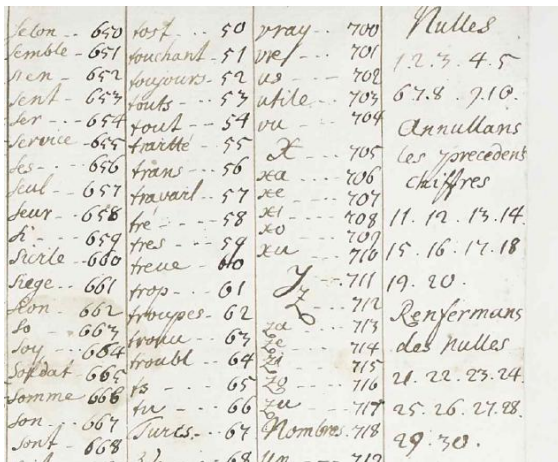 selon -- 650
semble - 651
sien - 652
sent - 653
ser --- 654
service - 655
ses --- 656
seul - 657
seur -- 658
si --- 659
surle - 660
siege - 661
sion - 662
so --- 663
soy - 664
soldat - 665
somme 666
son - 667
sont - 668
tost - 50
touchant - 51
toujours - 52
touts - 53
tout - 54
traitté - 55
trans - 56
travail - 57
tré - 58
tres - 59
treue - 60
trop - 61
troupes - 62
trouu - 63
troubl - 64
ts - 65
tu - 66
Turcs - 67
68
vray - 700
vre - 701
us - 702
utile - 703
vu - 704
X - 705
xa - 706
xe - 707
xi - 708
xo - 709
xu - 710
y - 711
z - 712
za - 713
ze - 714
zi - 715
zo - 716
zu - 717
Nombres - 718
un - 719
Nulles
1. 2. 3. 4. 5
6. 7. 8. 9. 10.
Annullans
les precedens
chiffres
11. 12. 13. 14.
15. 16. 17. 18
19. 20.
Renfermans
des nulles
21. 22. 23. 24.
25. 26. 27. 28.
29. 30.